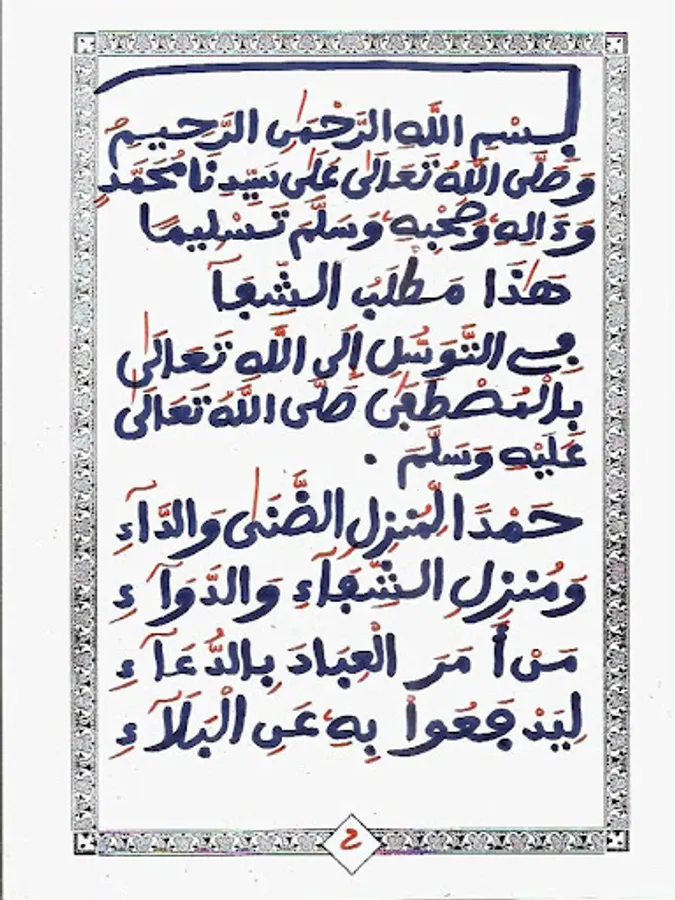 بِسْمِ اللَّهِ الرَّحْمَٰنِ الرَّحِيمِ
وَصَلَّى اللَّهُ تَعَالَىٰ عَلَىٰ سَيِّدِنَا مُحَمَّدٍ
وَءَالِهِ وَصَحْبِهِ وَسَلَّمَ تَسْلِيمًا
هَٰذَا مَطْلَبُ الشِّفَآ
فِے التَّوَسُّلِ إِلَى اللَّهِ تَعَالَىٰ
بِالْمُصْطَفَىٰ صَلَّى اللَّهُ تَعَالَىٰ
عَلَيْهِ وَسَلَّمَ .
حَمْدًا لِّمُنزِلِ الضَّنَىٰ وَالدَّآءِ
وَمُنزِلِ الشِّفَآءِ وَالدَّوَآءِ
مَنْ أَمَرَ الْعِبَادَ بِالدُّعَآءِ
لِيَدْفَعُوا بِهِ عَنِ الْبَلَآءِ
2